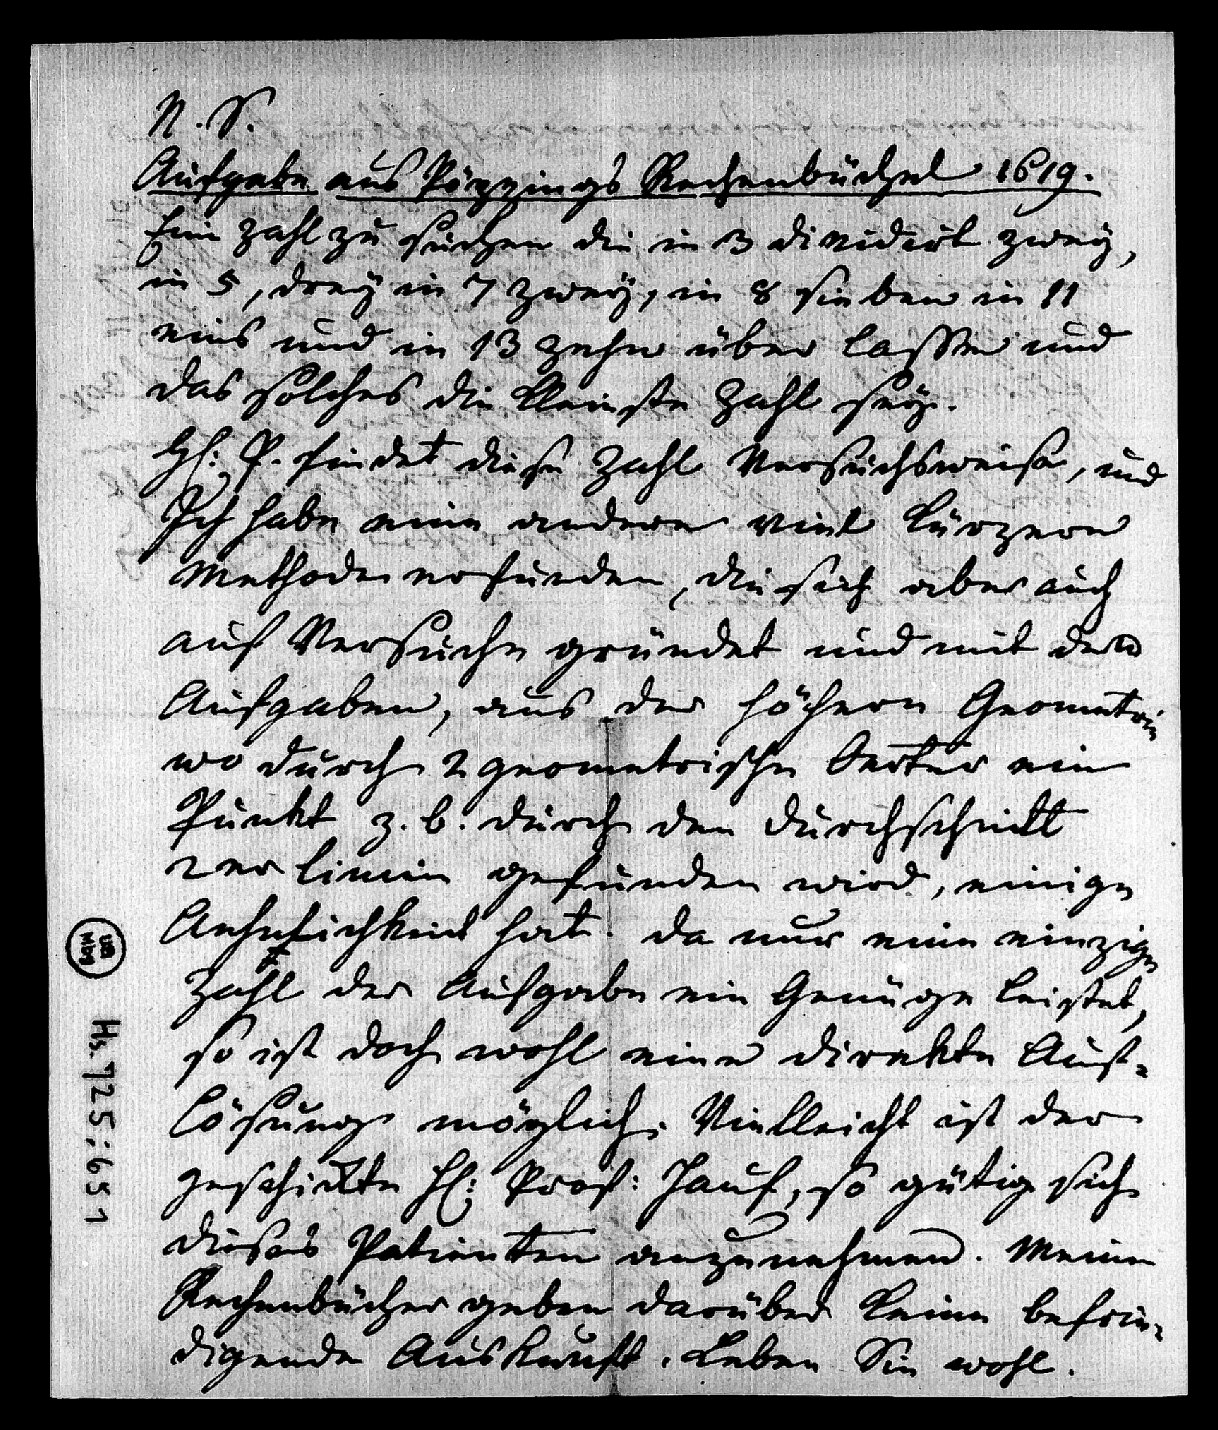 N. S.
Aufgabe aus Pözzings Rechenbüchel 1619.
Eine Zahl zu suchen die in 3 dividirt zwey,
in 5, drey in 7 zwey, in 8 sieben in 11
eins und in 13 zehn über lassen und
das solches die kleinste Zahl sey.
H: P. findet diese Zahl Versuchsweise, und
Ich habe eine andere viel kürzere
Methode erfunden, die sich aber auch
auf Versuche gründet und mit den
Aufgaben, aus der höhern Geometrie
wo durch 2 geometrische Oerter ein
Punkt z. b. durch den Durchschnitt
2er Linien gefunden wird, einige
Aehnlichkeit hat. Da nur eine einzige
Zahl der Aufgabe ein Genüge leistet,
so ist doch wohl eine direkte Auf=
lösung möglich. Vielleicht ist der
geschickte H: Prof: Hauf, so gütig sich
dieses Patienten anzunehmen. Meine
Rechenbücher geben darüber keine befrie=
digende Auskunft. Leben Sie wohl.
UB
MBG
Hs. 725:651